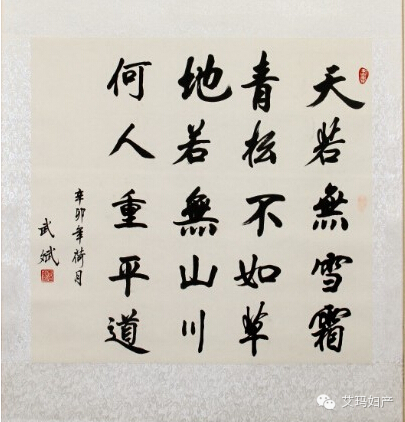 天若無雪霜
青松不如草
地若無山川
何人重平道
辛卯年荷月
武斌
艾玛妇产